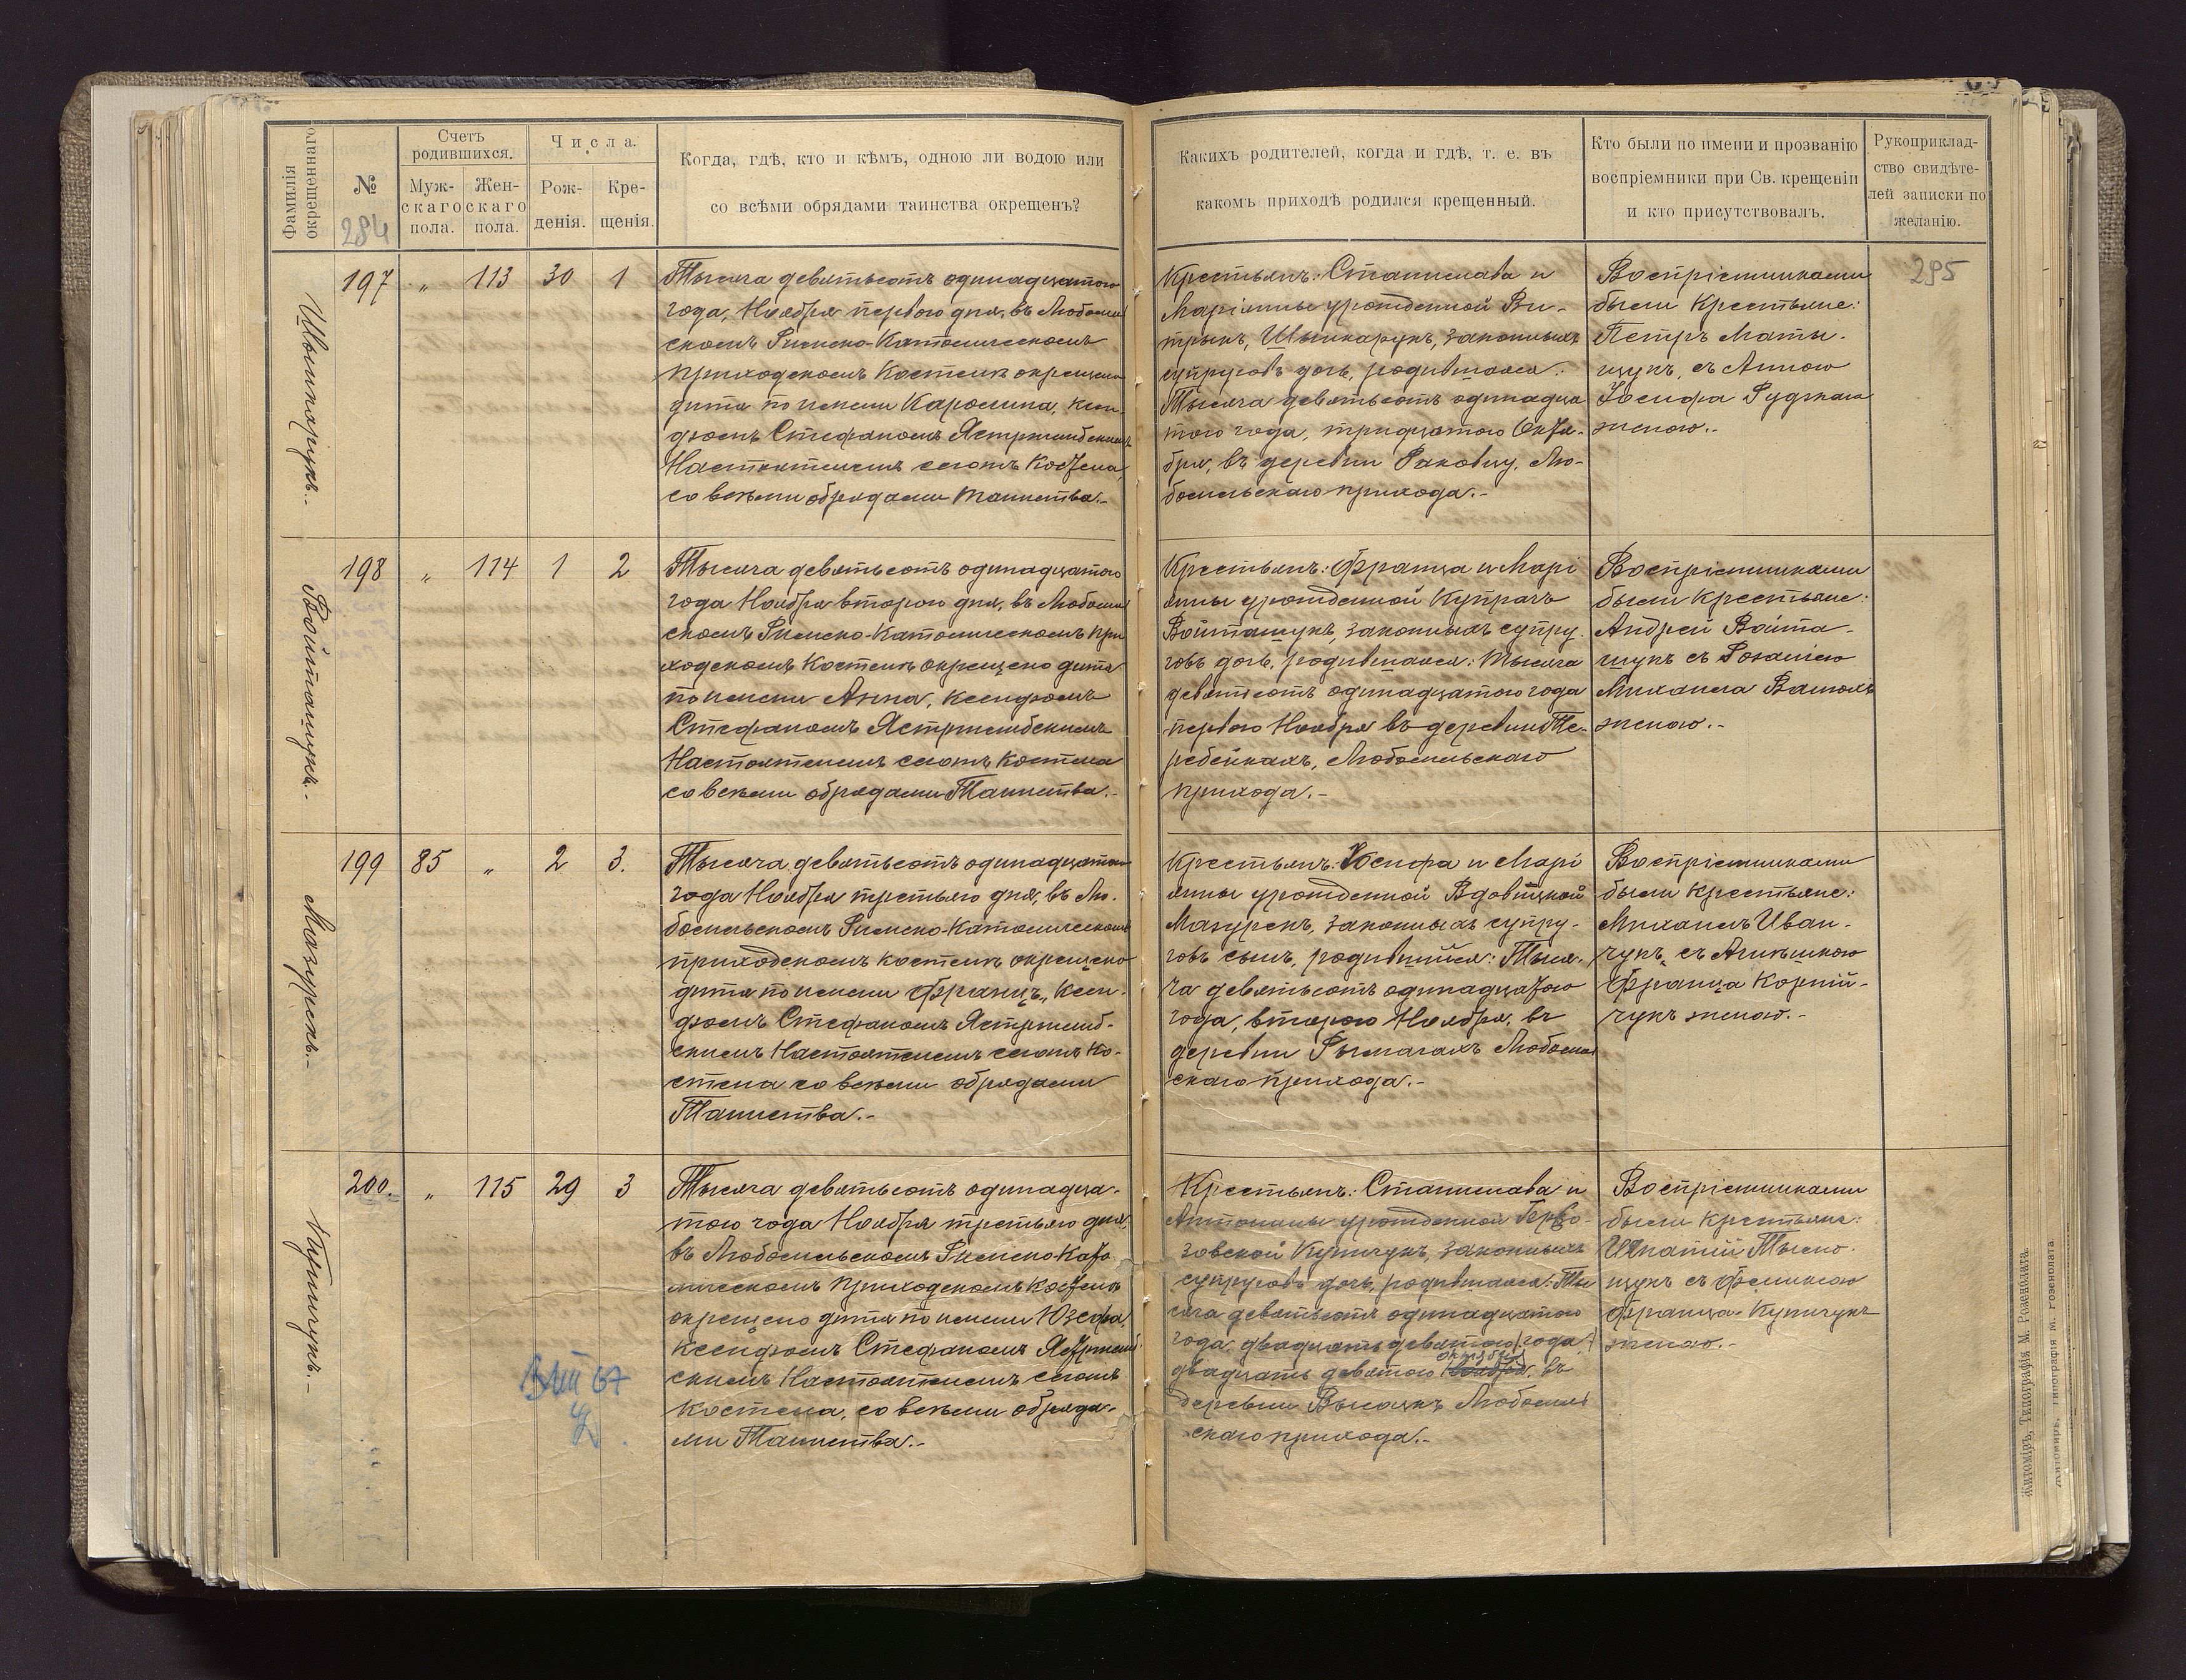 Фамилія
окрещеннаго
№
284
Счетъ
родившихся.
Муж-
скаго
пола.
Жен-
скаго
пола.
Числа.
Рож-
денія.
Кре-
щенія.
Когда, гдѣ, кто и кѣмъ, одною ли водою или
со всѣми обрядами таинства окрещенъ?
Каких​ъ родителей, когда и гдѣ, т. е. въ
какомъ приходѣ родился крещенный.
Кто были по имени и прозванію
воспріемники при Св. крещеніи
и кто присутствовалъ.
Рукоприклад-
ство свидѣте-
лей записки по
желанію.
295
197 „ 113 30 1
Тысяча девятьсотъ одинадцатого
года, Ноября первого дня, въ Любомль
скомъ Римско-Католическомъ
приходскомъ Костелѣ окрещено
дитя по имени Каролина, Ксен-
дзомъ Стефаномъ Ястржембскимъ
Настоятелемъ сего​тъ Костела,
со всѣми обрядами таинства.-
Крестьянъ: Станислава и
Маріянны урожденной
законныхъ
супруговъ дочь, родившаяся:
Тысяча девятьсотъ одинадца
того года, тридцатого Октя-
бря, въ деревни Лю-
бомльскаго прихода.-
Воспріемниками
были Крестьяне:
Петръ Маты-
щукъ, съ Анною
Іосифа Рудзкаго
женою.-
Войтащукъ.-
198 „ 114 1 2
Тысяча девятьсотъ одинадцатого
года Ноября второго дня, въ Любомль
скомъ Римско-Католическомъ при
ходскомъ Костелѣ окрещено дитя
по имени Анна, Ксендзомъ
Стефаномъ Ястржембскимъ
Настоятелемъ Костела
со всѣми обрядами Таинства.-
Крестьянъ: Франца и Марі
янны урожденной Купрачъ
Войтащукъ, законныхъ супру-
говъ дочь, родившаяся: Тысяча
девятьсотъ одинадцатого года
первого Ноября въ деревни Те-
ребейкахъ, Любомльскаго
прихода.-
Воспріемниками
были Крестьяне:
Андрей Войта-
щукъ съ Розаліею
Михаила
женою.-
Мазурекъ.-
199 85 „ 2 3.
Тысяча девятьсотъ одинадцатого
года Ноября третьяго дня, въ Лю-
бомльскомъ Римско-Католическомъ
приходскомъ костелѣ окрещено
дитя по имени Францъ, Ксен-
дзомъ Стефаномъ Ястржемб-
скимъ Настоятелемъ Ко-
стела со всѣми обрядами
Таинства.-
Крестьянъ: Іосифа и Марі
янны урожденной Вдовицкой
Мазурекъ, законныхъ супру-
говъ сынъ, родившійся: Тыся-
ча девятьсотъ одинадцатого
года, второго Ноября, въ
деревни Рымачахъ Любомль
скаго прихода.-
Воспріемниками
были Крестьяне:
Михаилъ Иван-
чукъ, съ Агнѣшкою
Франца Корній-
чукъ женою.-
Купичукъ.-
200. „ 115 29 3
Тысяча девятьсотъ одинадца-
того года Ноября третьяго дня,
въ Любомльскомъ Римско-Като
лическомъ Приходскомъ Костелѣ
окрещено дитя по имени Юзефа,
Ксендзомъ Стефаномъ Ястржемб
скимъ Настоятелемъ
Костела, со всѣми обряда-
ми Таинства.-
Крестьянъ: Станислава и
Антонины урожденной
Купичукъ, законныхъ
супруговъ дочь, родившаяся: Ты
сяча девятьсотъ одинадцатого
года, двадцать девятого (года)
двадцать девятого Октября Ноября, въ
деревни Высоцкъ Любомль
скаго прихода.-
Воспріемниками
были Крестьяне:
съ Феликсою
Франца Купичукъ
женою.-
Житоміръ, Типографія М. Розенблата.
Житоміръ, Типографія М. Розенблата